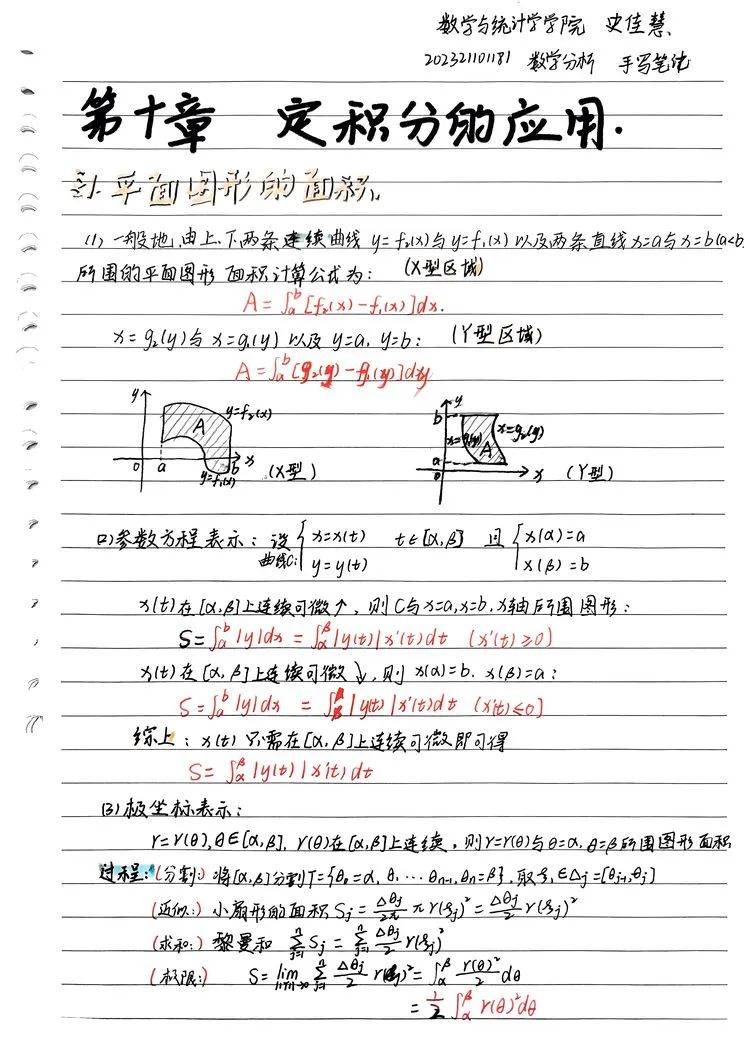 数学与统计学学院 史佳慧
202321101181 数学分析 手写笔记
第十章 定积分的应用.
§1. 平面图形的面积.
(1) 一般地,由上、下两条连续曲线 y=f₂(x)与y=f₁(x)以及两条直线x=a与x=b(a<b)
所围的平面图形 面积计算公式为: (X型区域)
A=∫ₐᵇ[f₂(x)-f₁(x)]dx.
x=g₂(y)与 x=g₁(y) 以及 y=a, y=b: (Y型区域)
A=∫ₐᵇ[g₂(y)-g₁(y)]dy
y y=f₂(x) A 0 a b x y=f₁(x) (X型)
y b x=g₁(y) x=g₂(y) A a 0 x (Y型)
(2)参数方程表示: 设曲线C: { x=x(t) y=y(t) t∈[α,β] 且 { x(α)=a x(β)=b
x(t)在[α,β]上连续可微↗, 则C与x=a,x=b,x轴所围图形:
S=∫ₐᵇ|y|dx=∫_α^β|y(t)|x'(t)dt (x'(t)≥0)
x(t)在[α,β]上连续可微↘,则 x(α)=b. x(β)=a:
S=∫ₐᵇ|y|dx = ∫|y(t)|x'(t)dt (x'(t)≤0]
综上: x(t)只需在[α,β]上连续可微即可得
S= ∫_α^β|y(t)|x'(t)dt
(3)极坐标表示:
r=r(θ),θ∈[α,β], r(θ)在[α,β]上连续, 则r=r(θ)与θ=α,θ=β所围图形面积
过程:(分割:) 将[α,β]分割T={θ₀=α, θ₁ ⋯ θₙ₋₁,θₙ=β}, 取ξⱼ∈Δⱼ=[θⱼ₋₁,θⱼ]
(近似:) 小扇形的面积 Sⱼ=Δθⱼ/2π π r(ξⱼ)²=Δθⱼ/2 r(ξⱼ)²
(求和:) 黎曼和 ∑ⱼ₌₁ⁿ Sⱼ = ∑ⱼ₌₁ⁿ Δθⱼ/2 r(ξⱼ)²
(极限:) S=lim_{||T||→0} ∑ⱼ₌₁ⁿ Δθⱼ/2 r(ξⱼ)²=∫_α^β r(θ)²/2 dθ
=1/2∫_α^β r(θ)²dθ